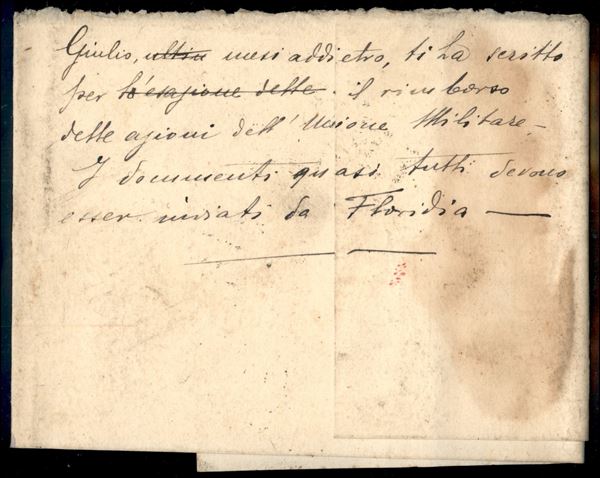 Giulio, ultin mesi addietro, ti ha scritto
per l'esazione delle il rimborso
delle azioni dell'Unione Militare –
I documenti quasi tutti devono
esser inviati da Floridia —